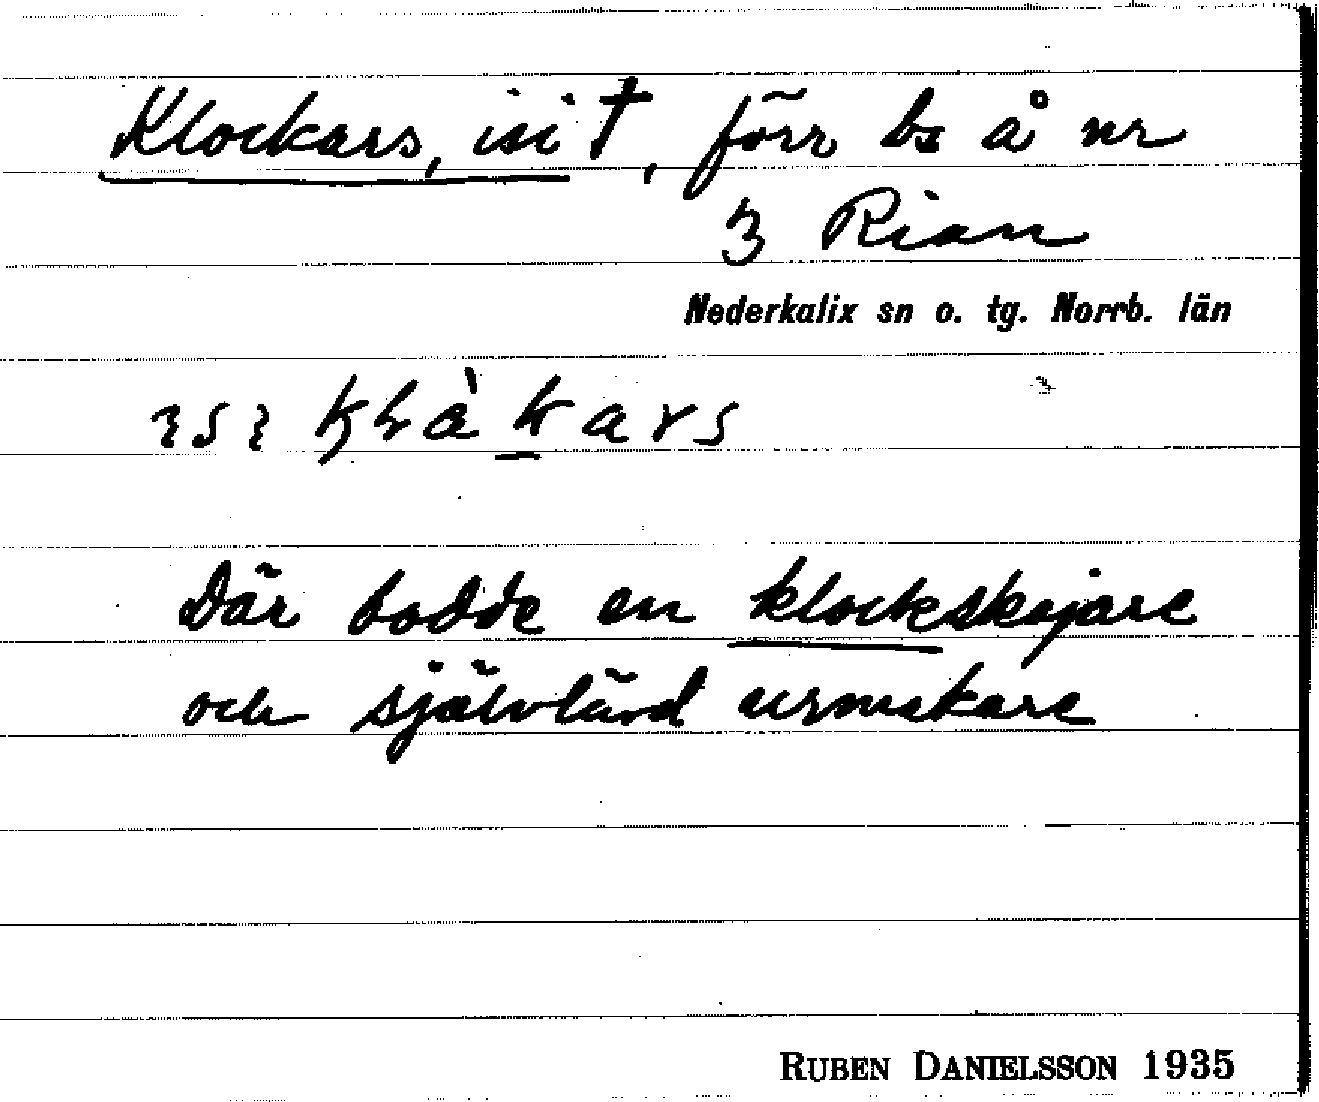 Klockars, isi †, förr bs å nr
3 Rian
Nederkalix sn o. tg. Norrb. län
Där bodde en klockskojare
och självlärd urmakare
RUBEN DANIELSSON 1935